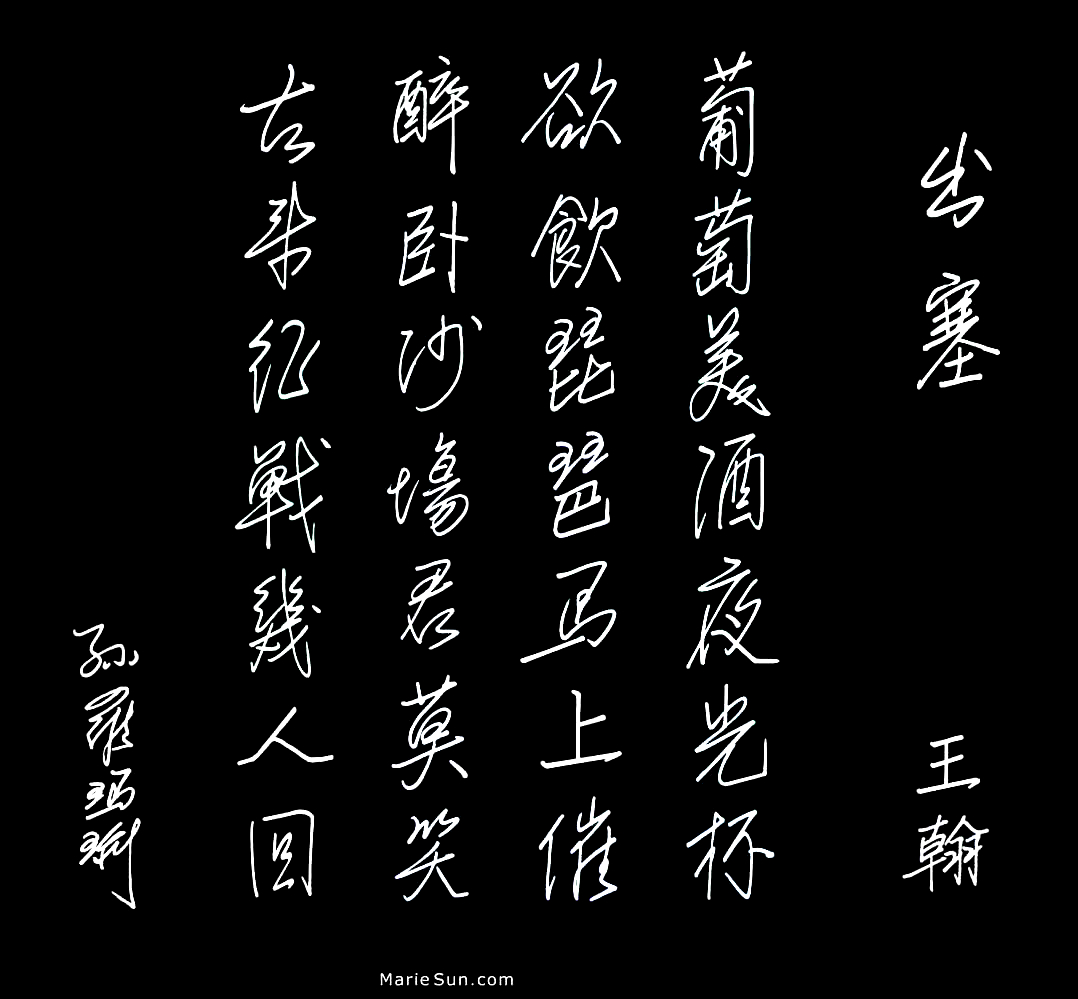 出塞 王翰
葡萄美酒夜光杯
欲飲琵琶馬上催
醉卧沙場君莫笑
古來征戰幾人回
孫羅瑪琍
MarieSun.com